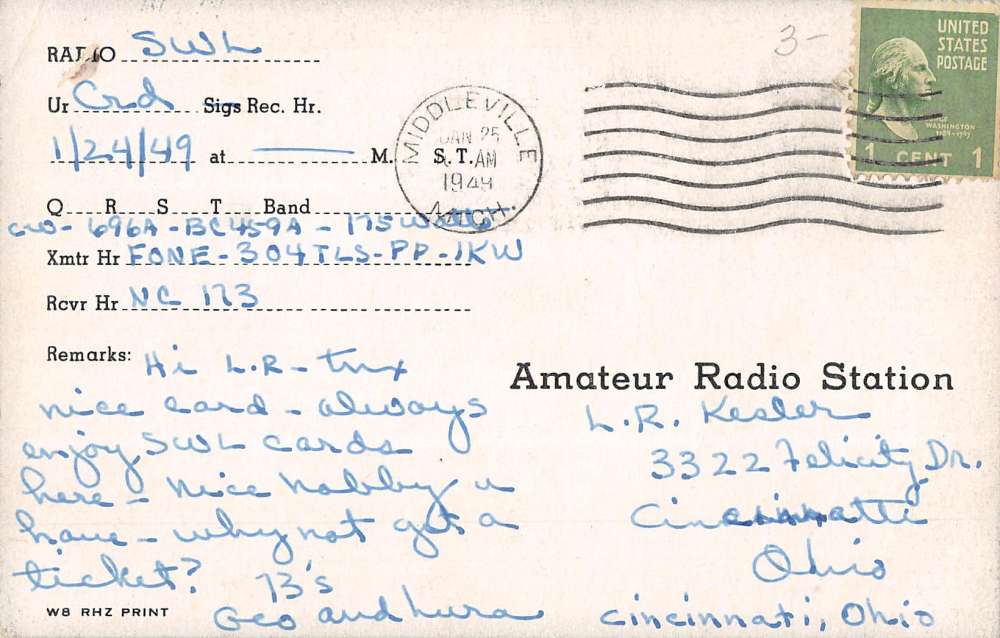 RADIO SWL
Ur Crd Sigs Rec. Hr.
1/24/49 at — M. S. T.
Q R S T Band
CW - 696A - BC459A - 175W
Xmtr Hr FONE - 304TLS - PP - 1KW
Rcvr Hr NC 173
Remarks: Hi L.R - tnx
nice card - always
enjoy SWL cards
here - nice hobby u
have - why not get a
ticket? 73's
Geo and Lura
W8 RHZ PRINT
3-
MIDDLEVILLE
JAN 25
AM
1949
MICH.
UNITED
STATES
POSTAGE
WASHINGTON
1 CENT 1
Amateur Radio Station
L.R. Kesler
3322 Felicity Dr.
Cincinatti
Ohio
Cincinnati, Ohio